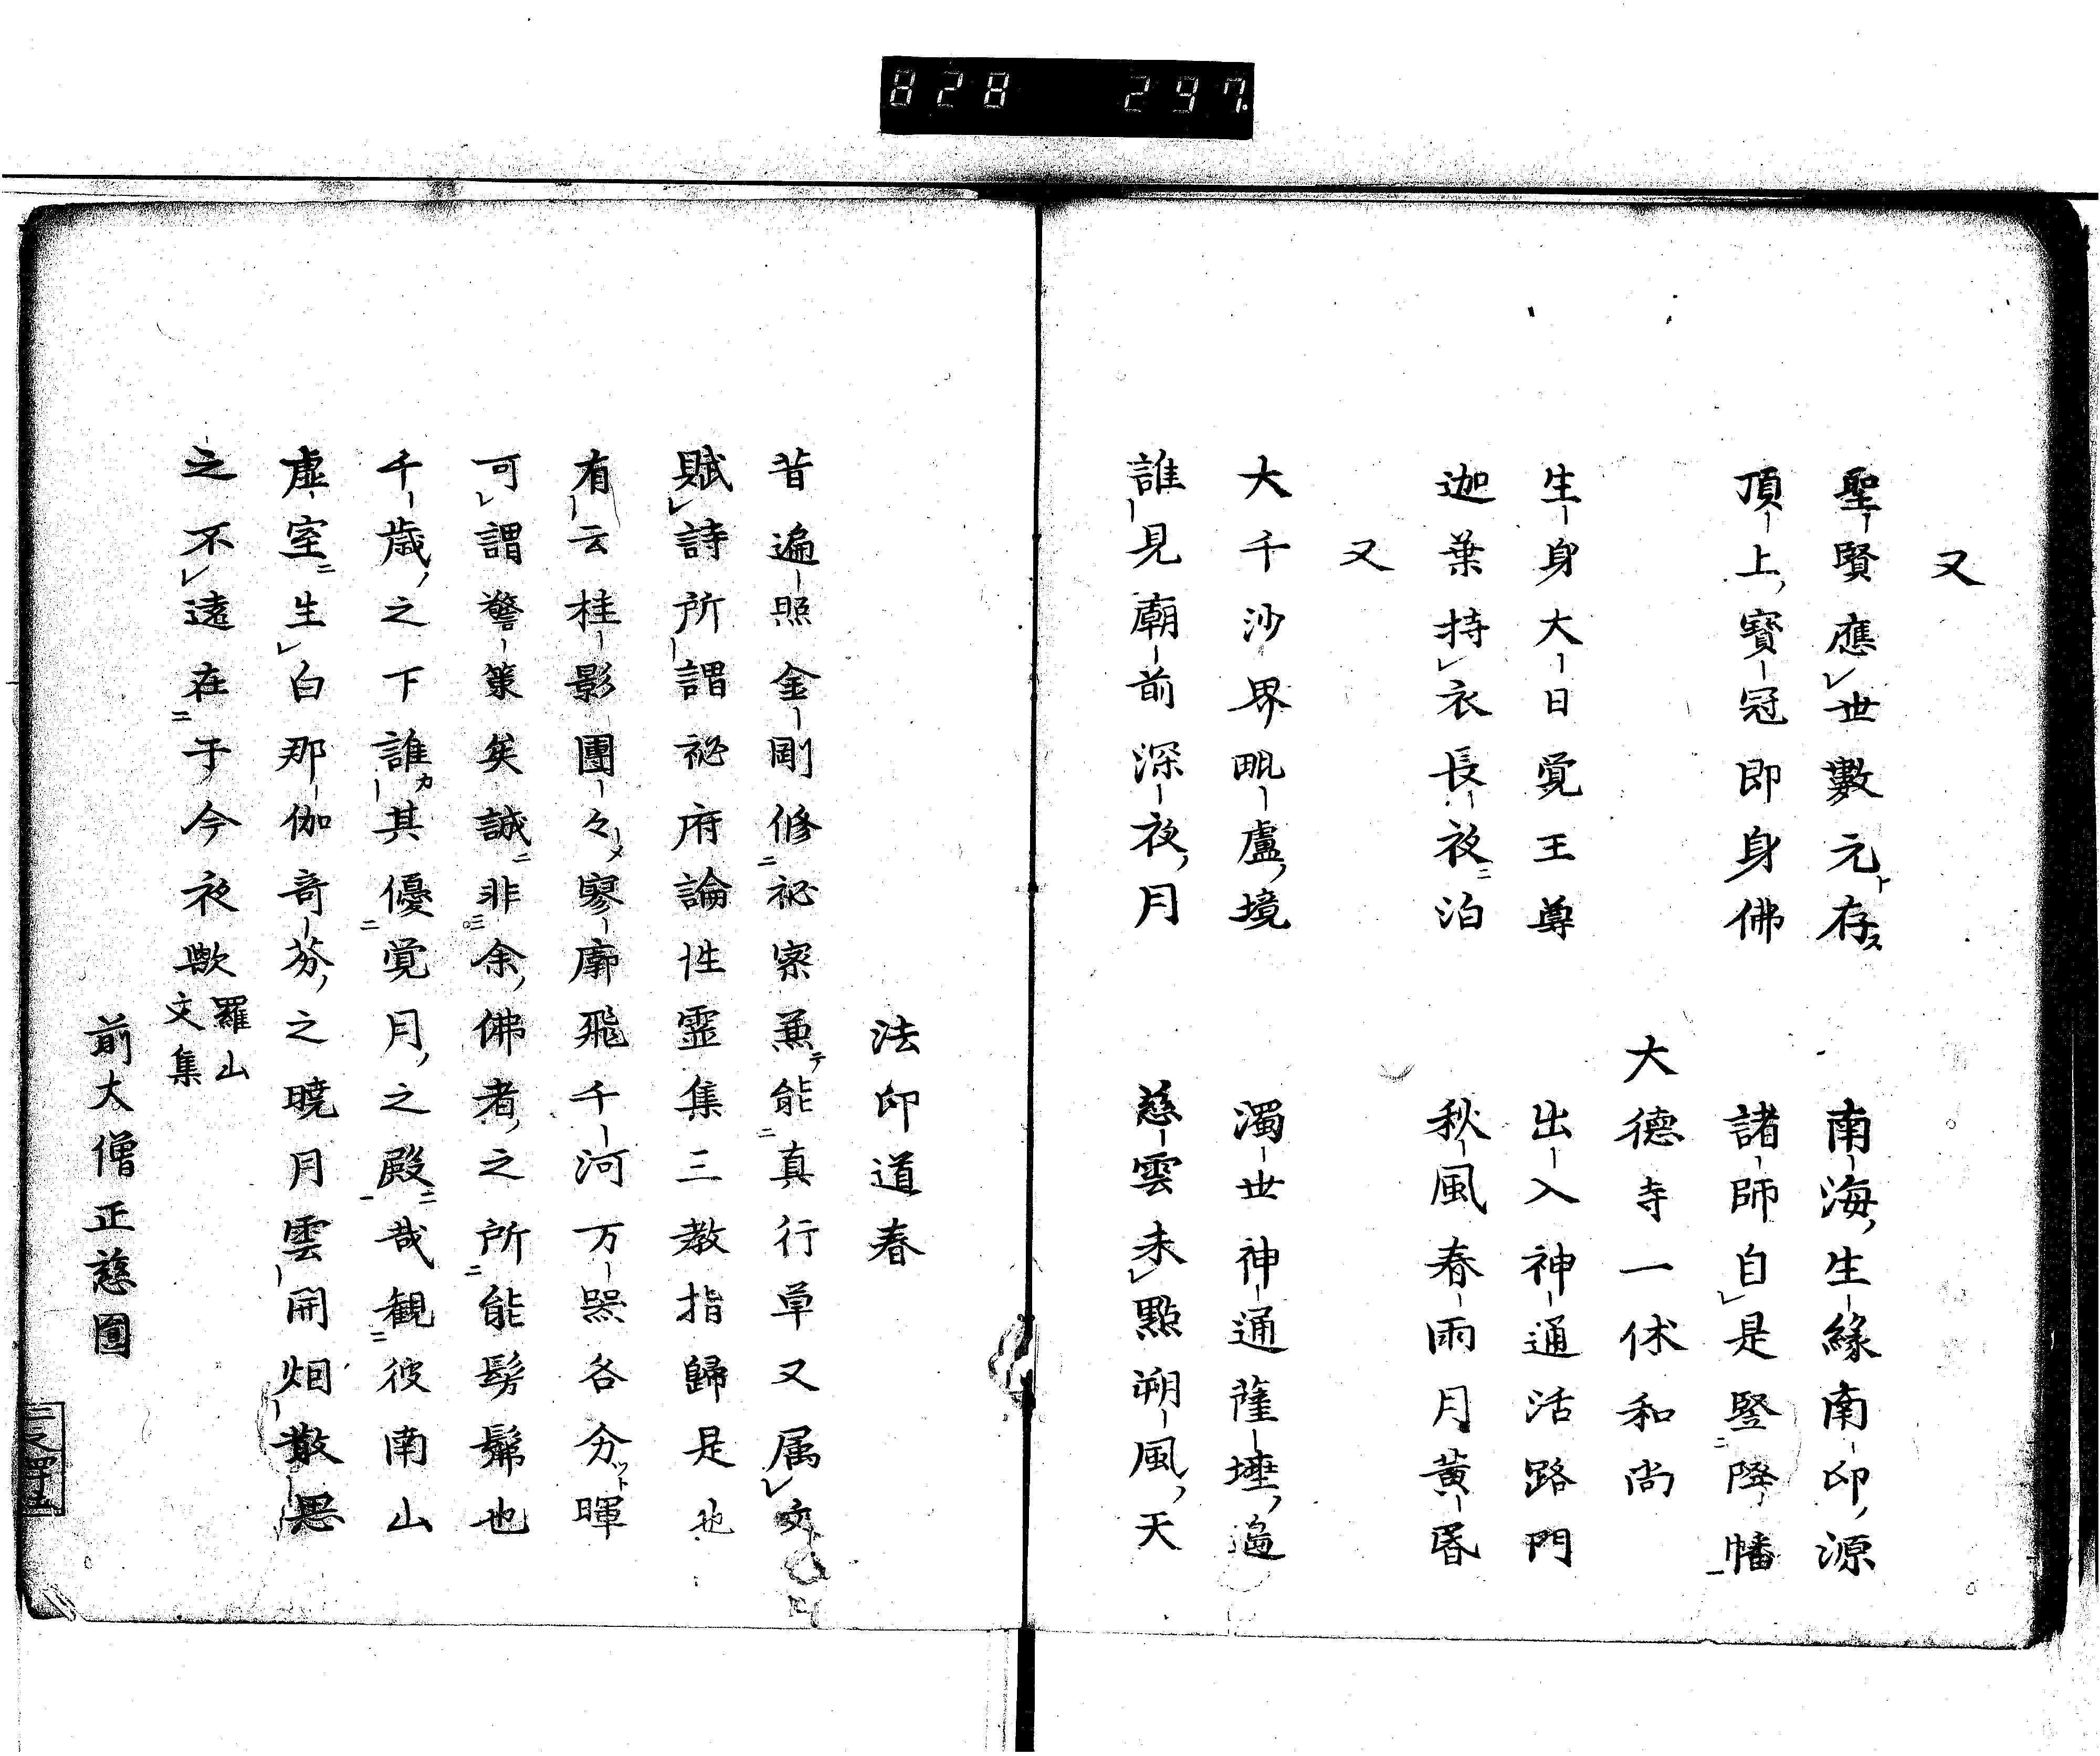 828 297.
又
聖賢應世數元存 南海生縁南印源
頂上寶冠即身佛 諸師自是竪降幡
大德寺一休和尚
生身大日覚王尊 出入神通活路門
迦葉持衣長夜泊 秋風春雨月黄昏
又
大千沙界毗盧境 濁世神通薩埵遍
誰見廟前深夜月 慈雲未點朔風天
法印道春
昔遍照金剛修祕密兼能真行草又属文
賦詩所謂祕府論性霊集三教指歸是也
有云桂影團々寥廓飛千河万器各分暉
可謂警策矣誠非余佛者之所能髣髴也
千歳之下誰其優覚月之殿哉観彼南山
虚室生白那伽奇芬之曉月雲開烟散思
之不遠在于今夜歟 羅山文集
前大僧正慈圓